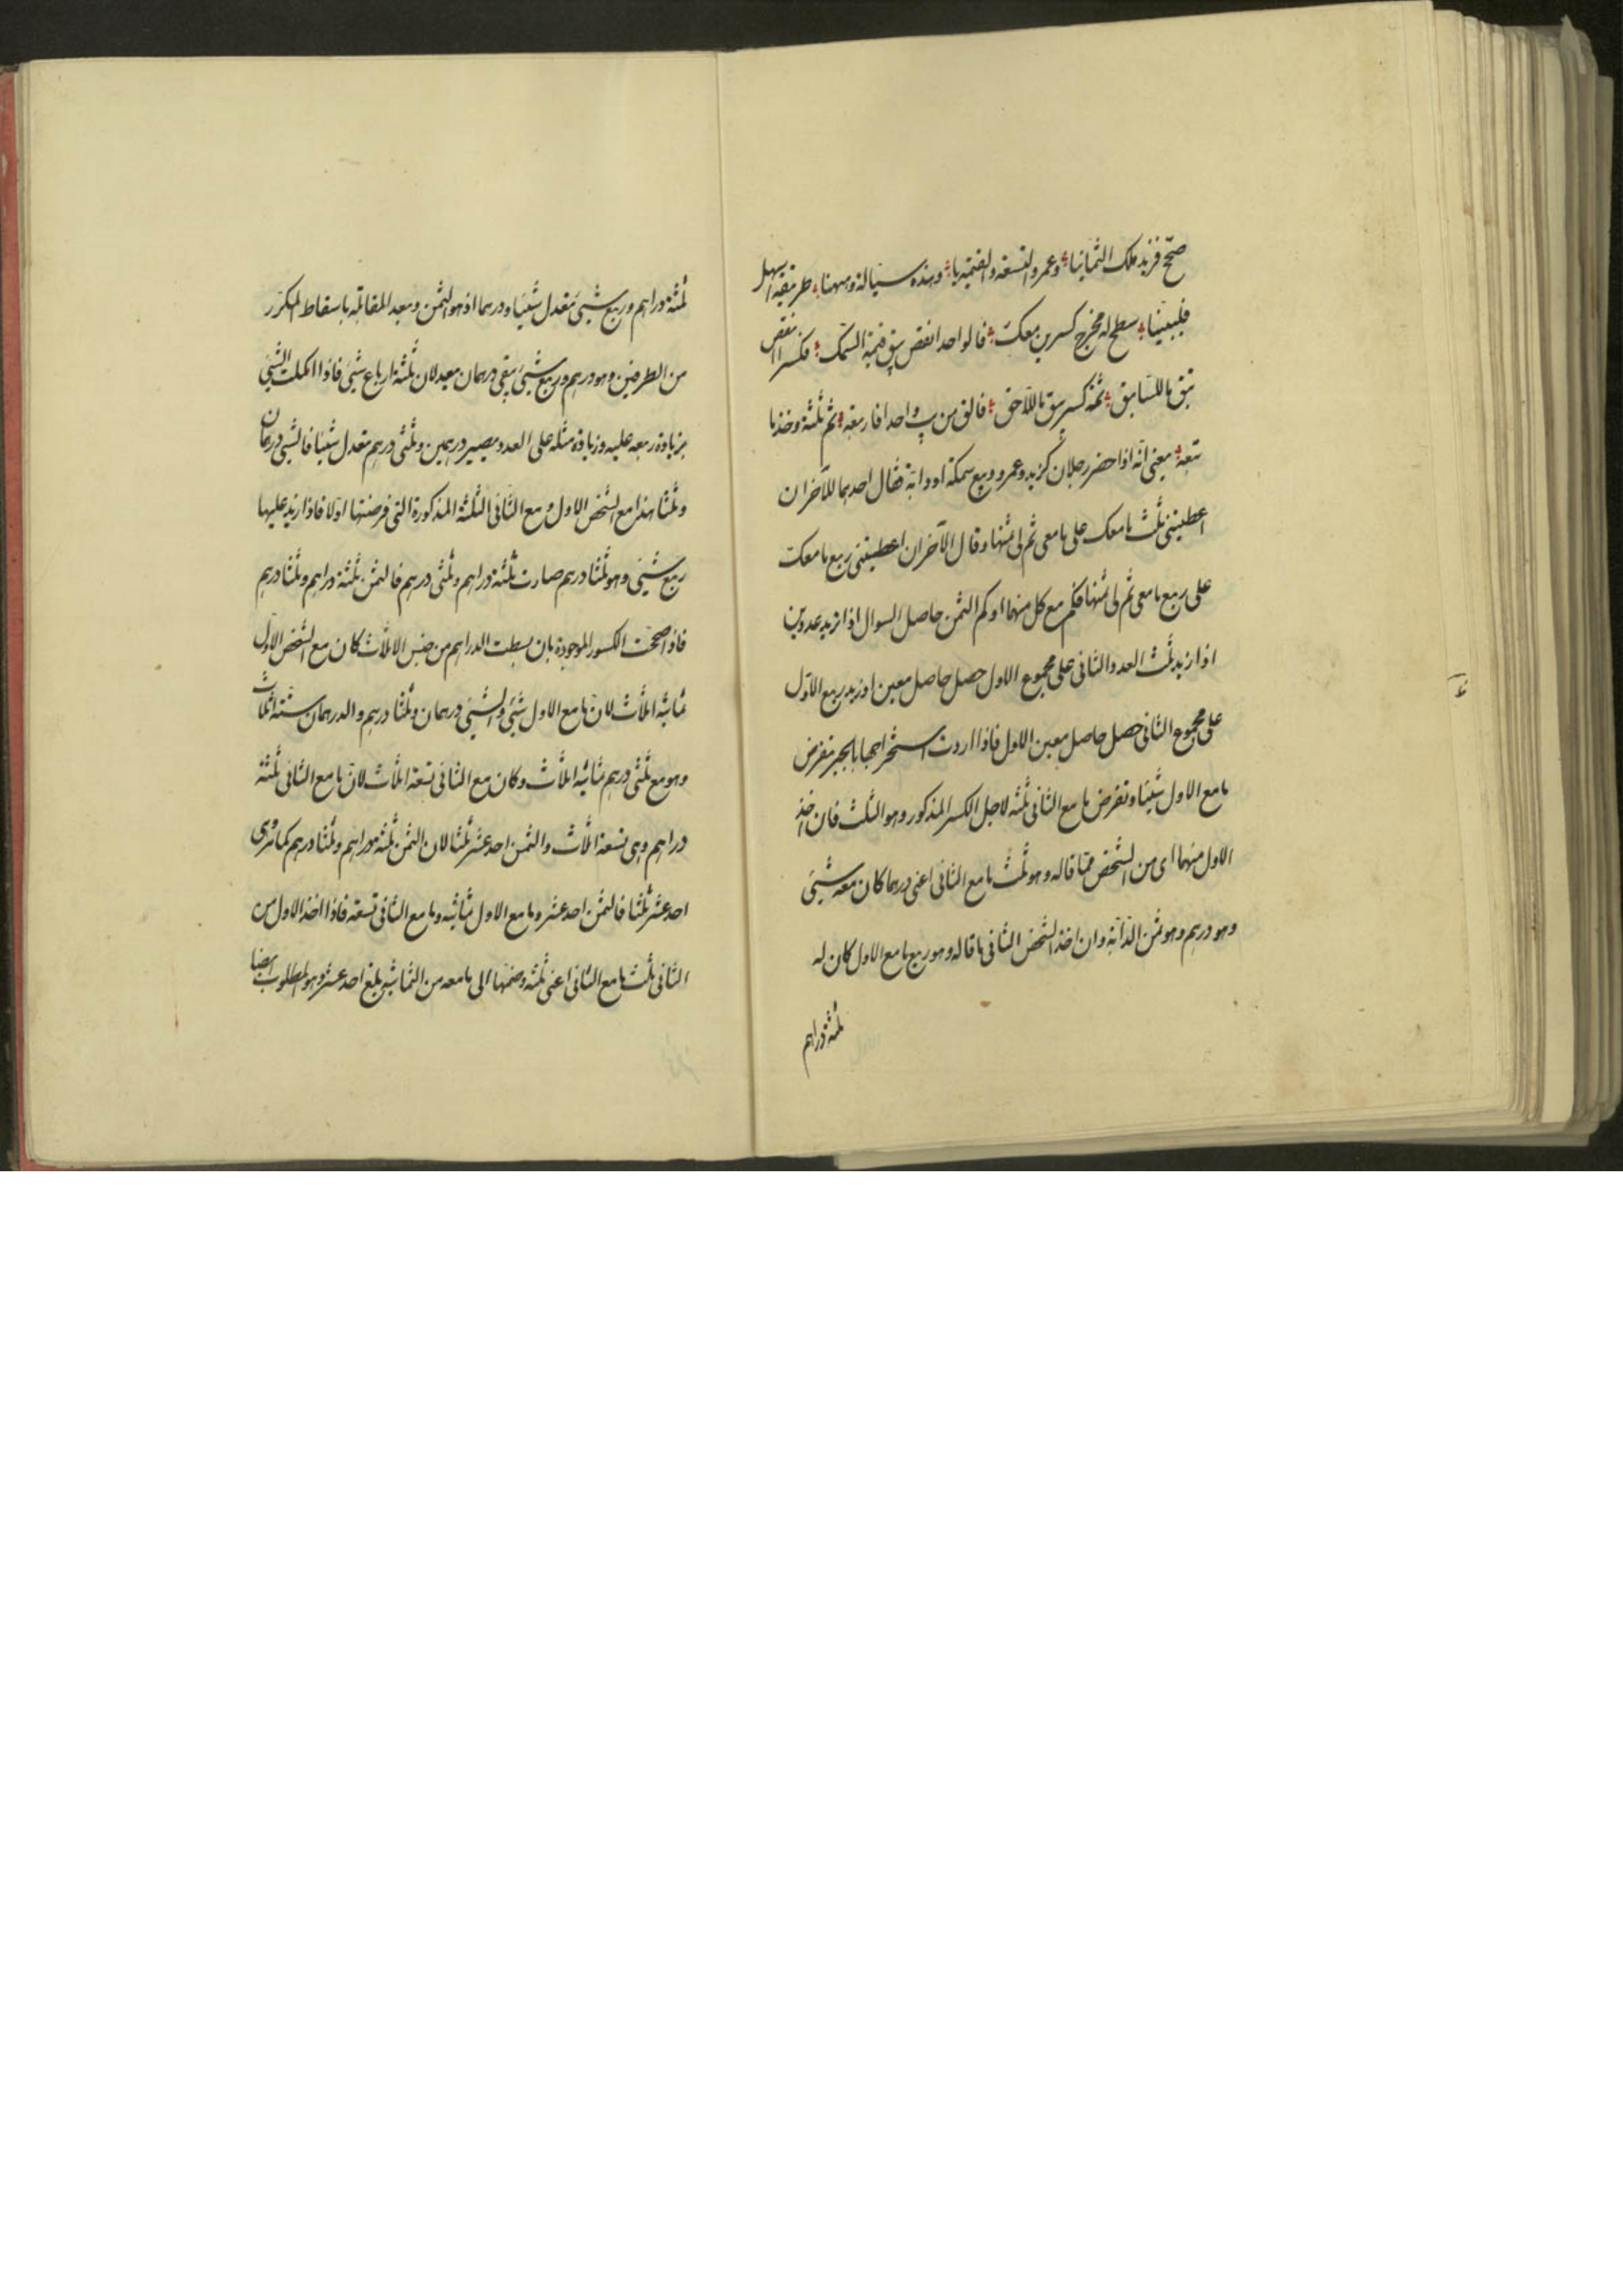 صحّ فزيد ملك الثمانيا وعمرو التسعة والقيمة يا وهذه سيالة وههنا طريقة اسهل
فليبنيا سطح له مخرج كسرين معك فالواحد انقص يبق قيمة السمك فكسرا انقص
يبق ما للسابق ثمة كسر يبق ما للاحق فالق من يب واحدا فاربعة ثم ثلثة وخذ ما
تبعه يعنى انه اذا حضر رجلان كزيد وعمرو وبيع سمكة او دابة فقال احدهما للآخر ان
اعطيتنى ثلث ما معك على ما معى تم لى ثمنها وقال الآخر ان اعطيتنى ربع ما معك
على ربع ما معى تم لى ثمنها فكم مع كل منهما وكم الثمن حاصل السوال اذا اريد عددين
اذا زيد ثلث العدد الثانى على مجموع الاول حصل حاصل معين او زيد ربع الاول
على مجموع الثانى حصل حاصل معين الاول فاذا اردت استخراجها بالجبر تفرض
ما مع الاول شيئا وتفرض ما مع الثانى ثلثه لاجل الكسر المذكور وهو الثلث فان اخذ
الاول منهما اى من الشخص مما قاله وهو ثلث ما مع الثانى اعنى درهما كان معه شيئ
وهو درهم وهو ثمن الدابة وان اخذ الشخص الثانى ما قاله وهو ربع ما مع الاول كان له
ثلثة دراهم
ثلثة دراهم وربع شيئ تعدل شيئا ودرهما اذ هو الثمن وبعد المقابلة باسقاط المكرر
من الطرفين وهو درهم وربع شيئ يبقى درهمان معيدلان ثلثة ارباع شيئ فاذا اكملت الشيئ
بزيادة ربعه عليه وزيادة مثله على العدد يصير درهمين وثلثى درهم تعدل شيئا فالشيئ درهمان
وثلثا هذا مع الشخص الاول ومع الثانى الثلثة المذكورة التى فرضتها اولا فاذا زيد عليها
ربع شيئ وهو ثلثا درهم صارت ثلثة دراهم وثلثى درهم فالثمن ثلثة دراهم وثلثا درهم
فاذا صححت الكسور الموجودة بان بسطت الدراهم من جنس الاثلاث كان مع الشخص الاول
ثمانية اثلاث لان ما مع الاول شيئ والشيئ درهمان وثلثا درهم والدرهمان ستة اثلاث
وهو مع ثلثى درهم ثمانية اثلاث وكان مع الثانى تسعة اثلاث لان ما مع الثانى ثلثة
دراهم وهى تسعة اثلاث والثمن احد عشر ثلثا لان الثمن ثلثة دراهم وثلثا درهم كما ترى وهى
احد عشر ثلثا فالثمن احد عشر وما مع الاول ثمانية وما مع الثانى تسعة فاذا اخذ الاول من
الثانى ثلث ما مع الثانى اعنى ثلثة وضمها الى ما معه من الثمانية بلغ احد عشر وهو المطلوب ايضا